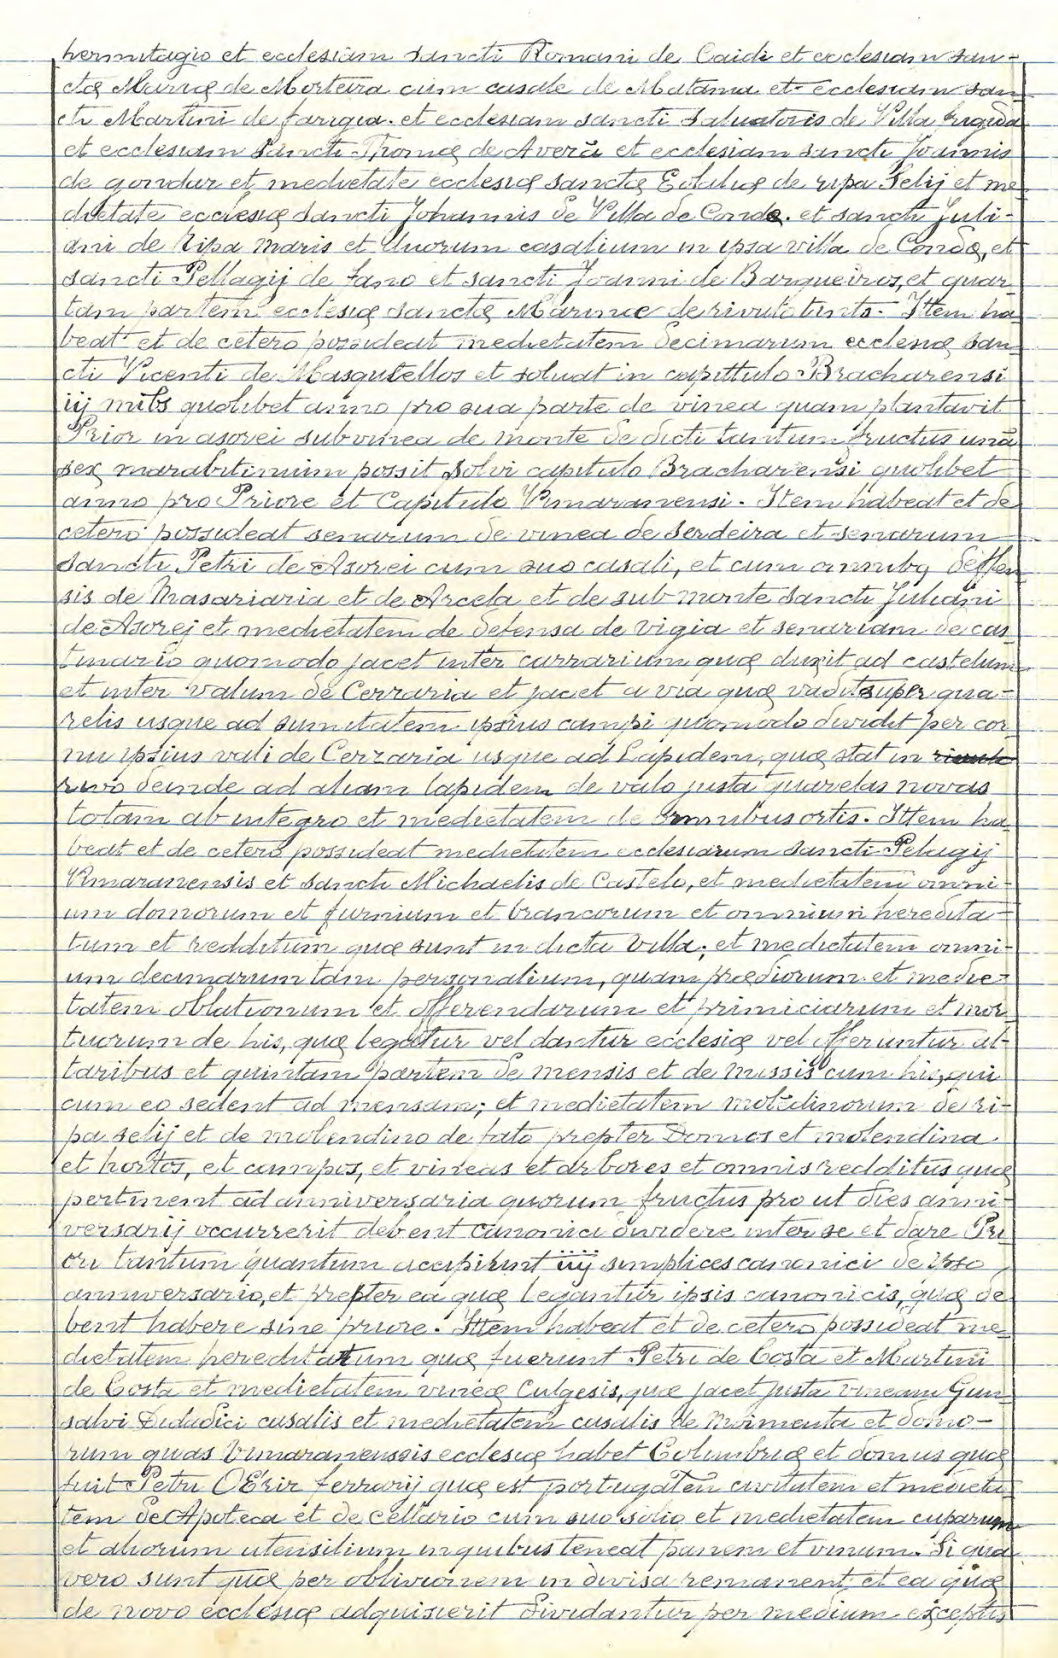 hermitagio et ecclesiam sancti Romani de Caide et ecclesiam san-
ctę Marinę de Morteira cum casale de Matama et ecclesiam san
cti Martini de farigia. et ecclesiam sancti salvatoris de Villa frigida
et ecclesiam Sancti Thomę de Averã et ecclesiam sancti Joannis
de gondar et medietate ecclesię sanctę Eolalię de ripa Selij et me
dietate ecclesię sancti Johannis de Villa de Conde. et sancti Juli-
ani de Ripa maris et duorum casalium in ipsa villa de Condę, et
sancti Pellagij de fano et sancti Joanni de Barqueiros, et quar
tam partem ecclesię sanctę Marinæ de rivuto tinto. Ittem ha
beat et de cetero possideat medietatem decimarum ecclesię san
cti Vicenti de Masqutellos et soluat in capittulo Bracharensi
iij mrbs quolibet anno pro sua parte de vinea quam plantavit
Prior in asorei sub vinea de monte de dicti tantum fructus unã
sex marabitinum possit solvi capitulo Bracharensi quolibet
anno pro Priore et Capitulo Vimaranensi. Item habeat et de
cetero possideat senarum de vinea de serdeira et senarum
sancti Petri de Asorei cum suo casali, et cum omnibq deffen
sis de Masariaria et de Arcela et de sub monte sancti Juliani
de Asorej et medietatem de defensa de vigia et senariam de cas
tinario quomodo jacet inter carrarium quæ duxit ad castelum
et inter valum de Cerraria et jacet a via quę vadit super qua-
relis usque ad sumitatem ipsius campi quomodo dividit per cor
nu ipsius vali de Cerraria usque ad Lapidem, quę stat in
rivo deinde ad aliam lapidem de valo justa quarelas novas
totam ab integro et medietatem de omnibus ortis. Ittem ha
beat et de cetero possideat medietatem ecclesiarum sancti Pelagij
Vimaranensis et sancti Michaelis de Castelo, et medietatem omni-
um domorum et furnium et brancorum et omnium heredita-
tum et redditum quæ sunt in dicta Villa; et medietatem omni-
um decimarum tam personalium, quam prædiorum et medie-
tatem oblationum et offerendarum et primiciarum et mor
tuorum de his, quę legatur vel dantur ecclesię vel offeruntur al-
taribus et quintam partem de mensis et de missis cum his, qui
cum eo sedent ad mensam; et medietatem moledinorum de ri-
pa selij et de molendino de fato prepter Domos et molendina
et hortos, et campos, et vineas et arbores et omnis redditus quę
pertinent ad anniversaria quorum fructus pro ut dies anni-
versarij occurrerit debent canonici dividere inter se et dare Pri
ori tantum quantum accipiunt iiij simplices canonici de ipso
anniversario, et prepter ea quę legantur ipsis canonicis, quę de
bent habere sine priore. Ittem habeat et de cetero possideat me
dietatem hereditatum quę fuerunt Petri de Costa et Martini
de Costa et medietatem vineæ Culgesis, quæ jacet justa vineam Gun
salvi Didadici casalis et medietatem casalis de Moimenta et domo-
rum quas Vimaranensis ecclesię habet Columbrię et domus quę
fuit Petri ferrarij quę est portugaten civitatem et medieta
tem de Apoteca et de cellario cum suo solio et medietatem cuparum
et aliorum utensilium in quibus teneat panem et vinum. Si qua
vero sunt quę per oblivionem in divisa remanent, et ea quę
de novo ecclesię adquisierit dividantur per medium exceptis